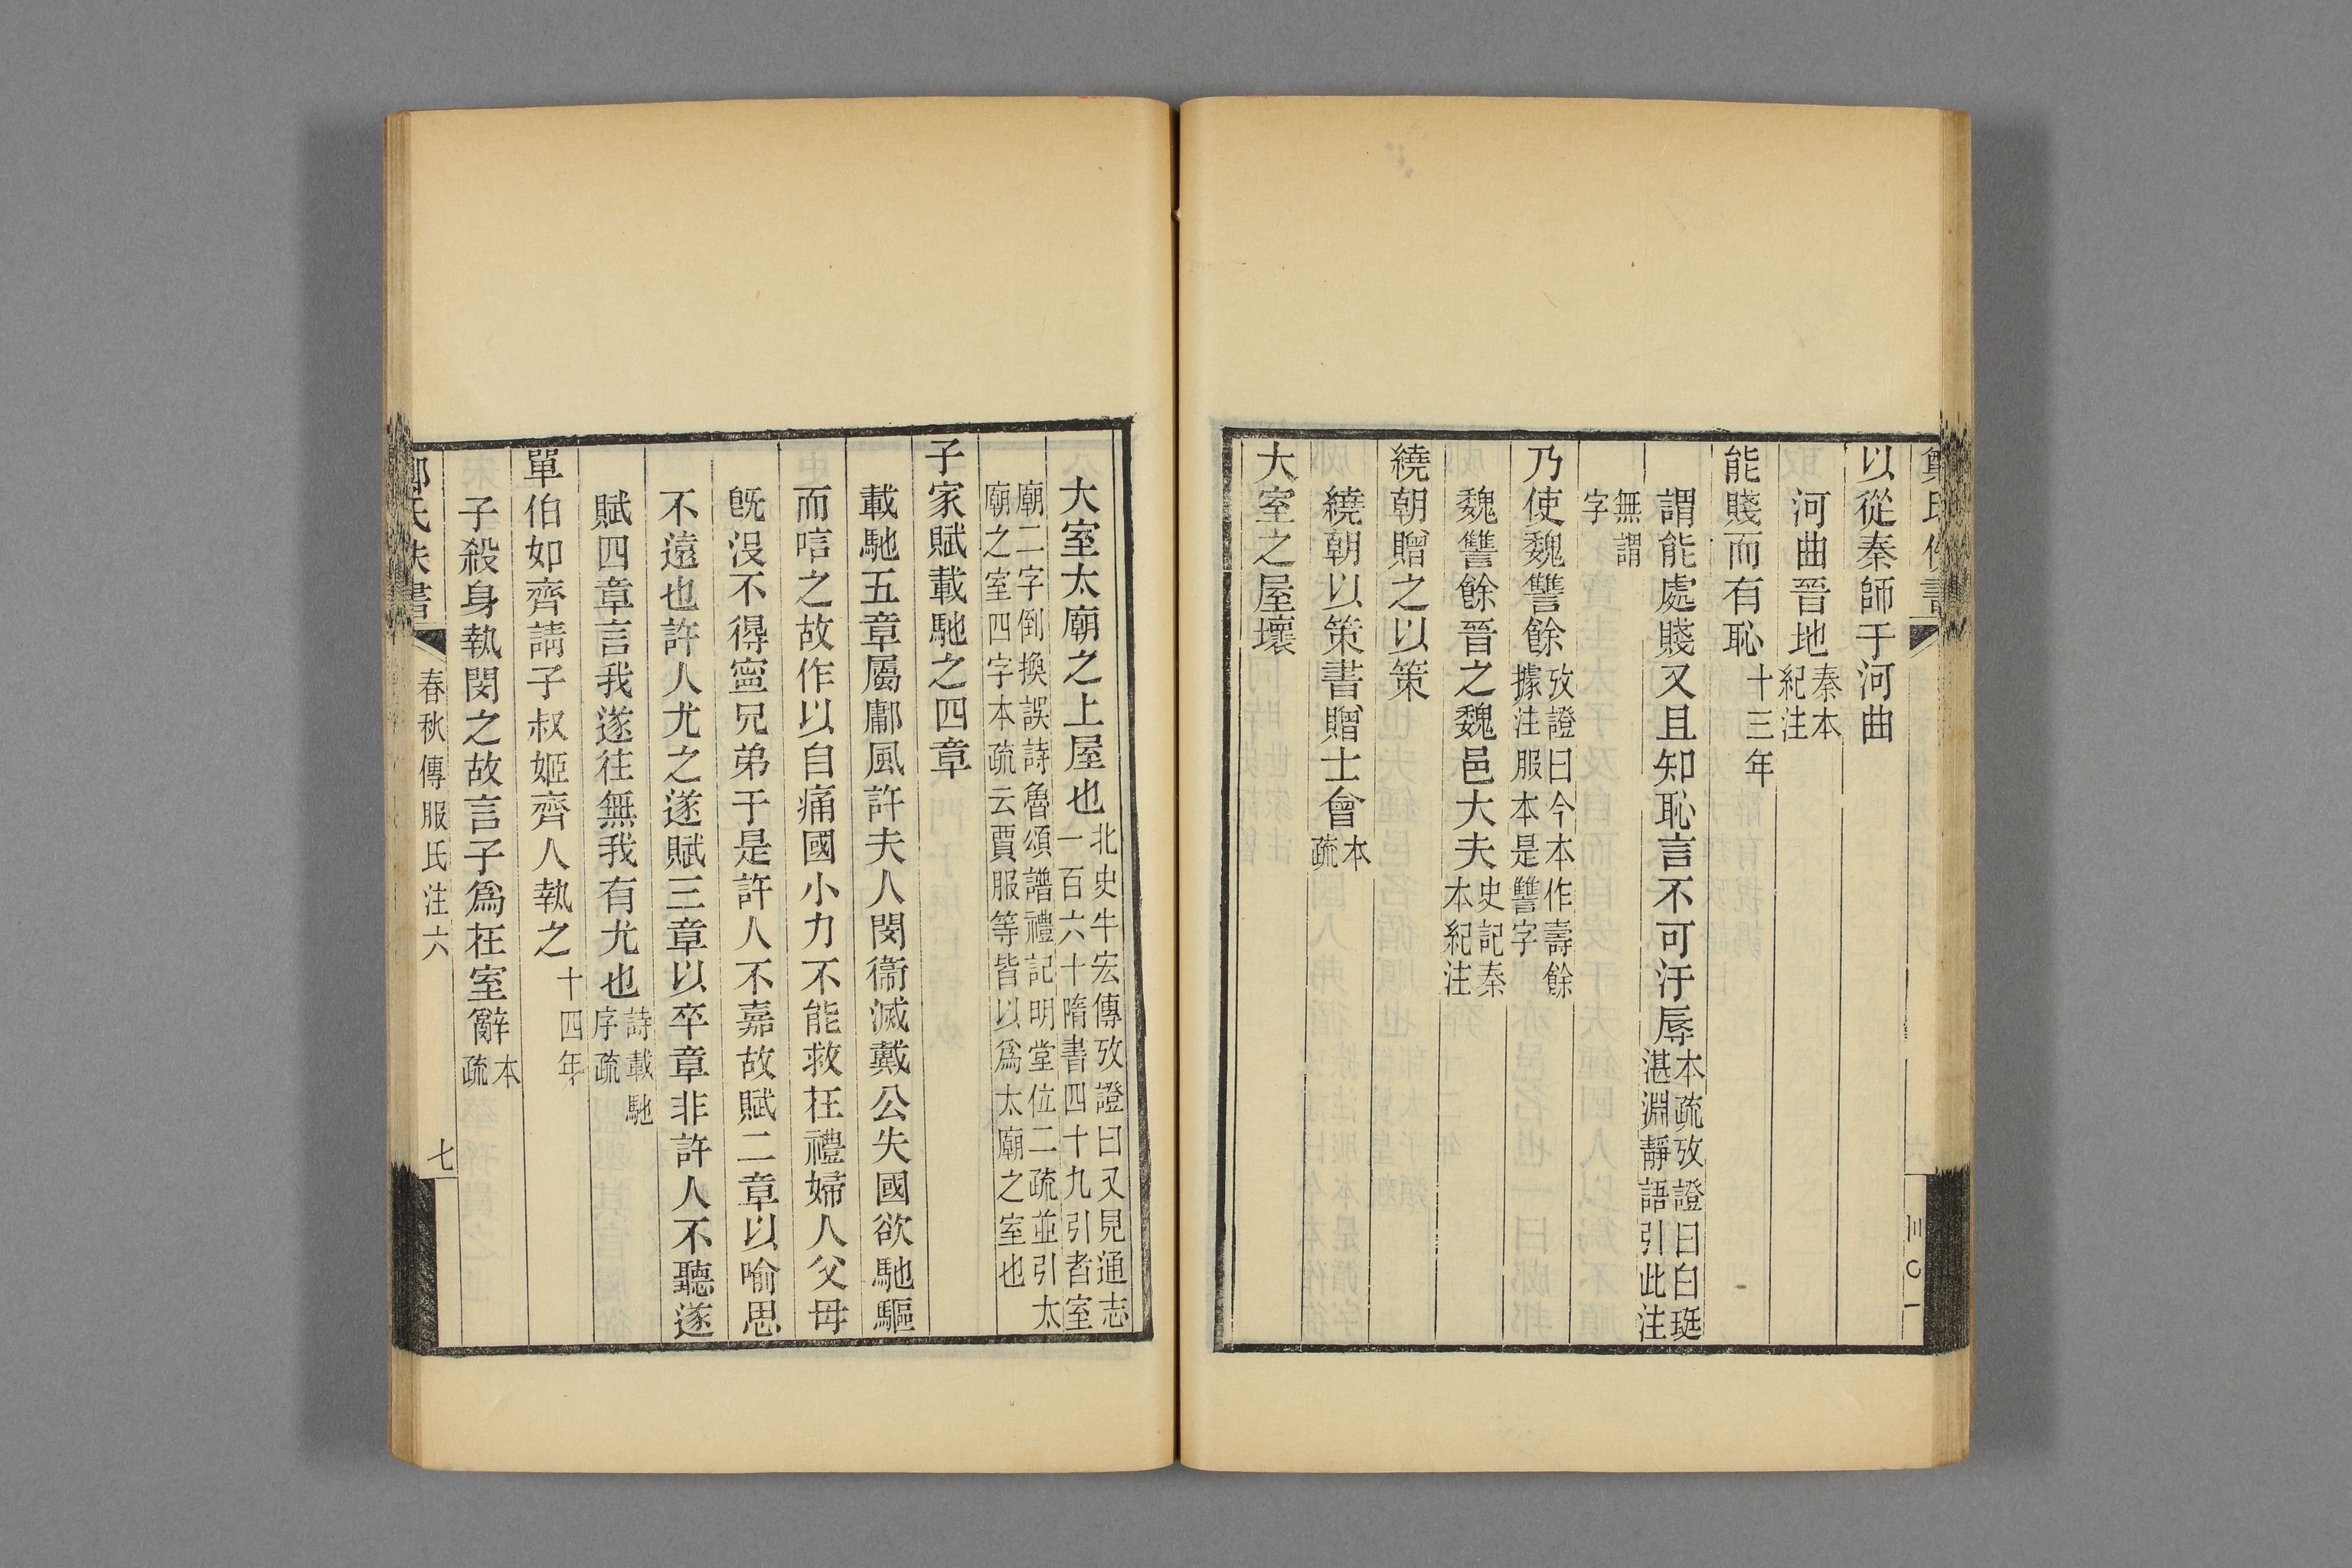 以從秦師于河曲
河曲晉地秦本紀注
能賤而有恥十三年
謂能處賤又且知恥言不可汙辱本疏攷證曰白珽湛淵靜語引此注
無謂字
乃使魏讐餘攷證曰今本作壽餘據注服本是讐字
魏讐餘晉之魏邑大夫史記秦本紀注
繞朝贈之以策
繞朝以策書贈士會本疏
大室之屋壞
大室太廟之上屋也北史牛宏傳攷證曰又見通志一百六十隋書四十九引者室
廟二字倒換誤詩魯頌譜禮記明堂位二疏並引太廟之室四字本疏云賈服等皆以爲太廟之室也
子家賦載馳之四章
載馳五章屬鄘風許夫人閔衞滅戴公失國欲馳驅
而唁之故作以自痛國小力不能救在禮婦人父母
旣沒不得寧兄弟于是許人不嘉故賦二章以喻思
不遠也許人尤之遂賦三章以卒章非許人不聽遂
賦四章言我遂往無我有尤也詩載馳序疏
單伯如齊請子叔姬齊人執之十四年
子殺身執閔之故言子爲在室辭本疏
春秋傳服氏注六
七